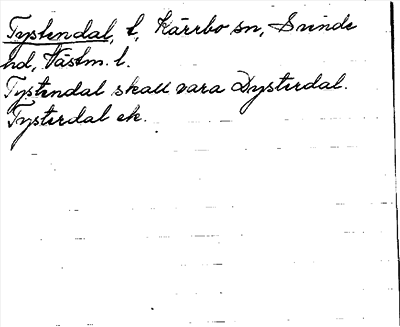 Tystendal, t, Kärrbo sn, Svinde
hd, Västm. l.
Tystendal skall vara Dysterdal.
Tysterdal ek.